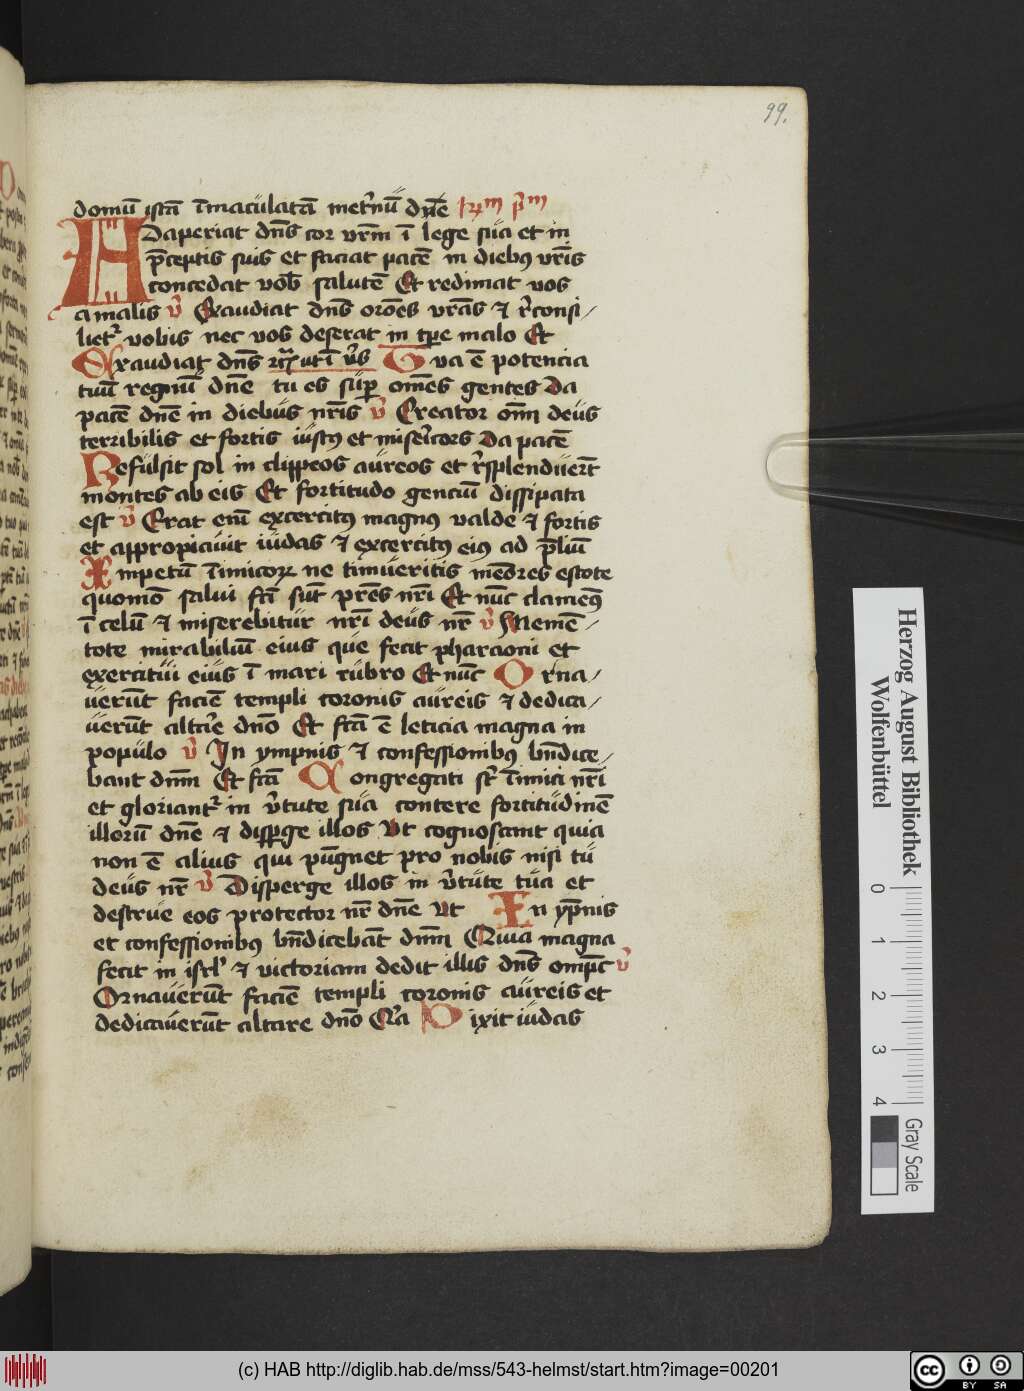 99.
domū istā īmaculatā
Adaperiat dn̄s cor vrm̄ ī lege sua et in
p̄ceptis suis et faciat pacē in diebꝯ vr̄is
concedat vob̄ salutē Et redimat vos
a malis v̄ Exaudiat dn̄s orōes vrās ⁊ r̄consi/
liet᷑ vobis nec vos deserat in tꝑe malo Et
Exaudiat dn̄s Tua ē potencia
tuū regnū dn̄e tu es suꝑ om̄es gentes Da
pacē dn̄e in diebus nr̄is v̄ Creator om̄ deus
terribilis et fortis iustꝯ et miseīcors Da pacē
Refulsit sol in clippeos aureos et r̄splenduer̄t
montes ab eis Et fortitudo genciū dissipata
est v̄ Erat enī excercitꝯ magnꝯ valde ⁊ fortis
et appropiauit iudas ⁊ excercitꝯ eiꝯ ad p̄liū
Impetū īimicoꝝ ne timueritis mēores estote
quomō salui fcī sūt pr̄es nr̄i Et nūc clamemꝯ
ī celū ⁊ miserebitur nr̄i deus nr̄ v̄ Memē/
tote mirabiliū eius que fecit pharaoni et
exercitui eius ī mari rubro Et nūc Orna/
uerūt faciē templi coronis aureis ⁊ dedica/
uerūt altar̄e dn̄o Et fcā ē leticia magna in
populo v̄ In ympnis ⁊ confessionibꝯ bn̄dice/
bant dnm̄ Et fcā Congregati sᷓt īimici nr̄i
et gloriant᷑ in v̄tute sua contere fortitudinē
illorū dn̄e ⁊ disꝑge illos Vt cognoscant quia
non ē alius qui pūgnet pro nobis nisi tu
deus nr̄ v̄ Disperge illos in v̄tute tua et
destrue eos protector nr̄ dn̄e Vt In yp̄nis
et confessionibꝯ bn̄dicebāt dnm̄ Quia magna
fecit in isrl̄ ⁊ victoriam dedit illis dn̄s omp̄c v̄
Ornauerūt faciē templi coronis aureis et
dedicauerūt altare dn̄o Qͣa Dixit iudas
Herzog August Bibliothek
Wolfenbüttel
0 1 2 3 4
Gray Scale
(c) HAB http://diglib.hab.de/mss/543-helmst/start.htm?image=00201
cc BY SA